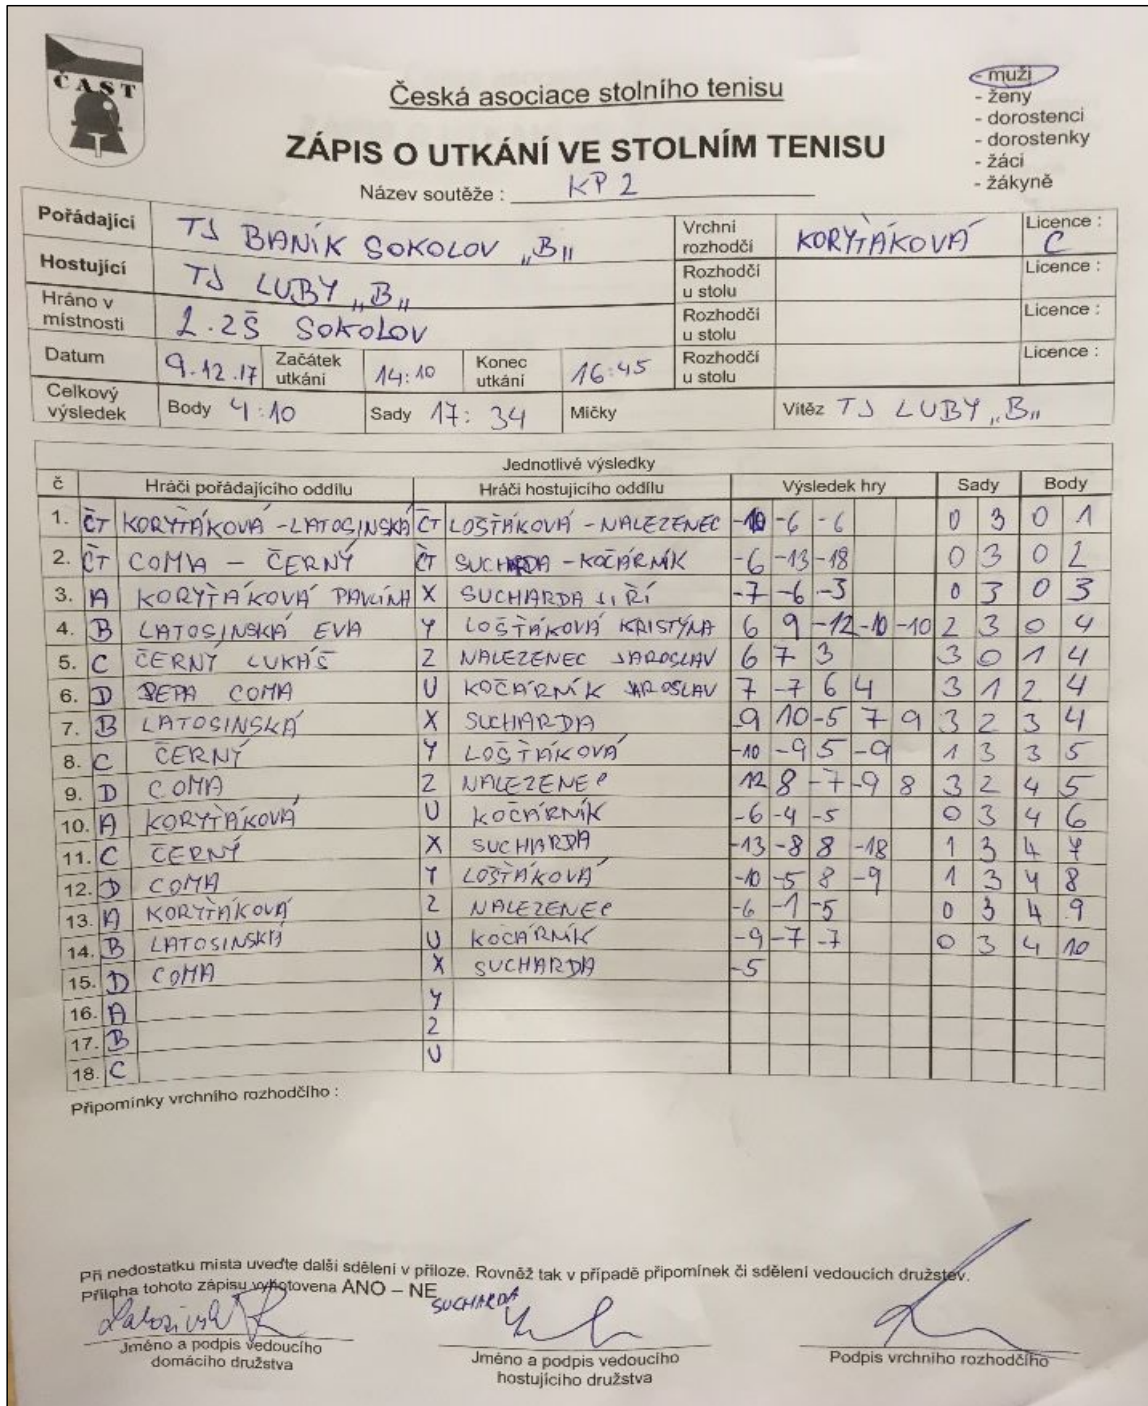 ČAST
Česká asociace stolního tenisu
ZÁPIS O UTKÁNÍ VE STOLNÍM TENISU
Název soutěže : KP 2
- muži
- ženy
- dorostenci
- dorostenky
- žáci
- žákyně
Pořádající TJ BANÍK SOKOLOV „B" Vrchní rozhodčí KORYŤÁKOVÁ Licence : C
Hostující TJ LUBY „B" Rozhodčí u stolu Licence :
Hráno v místnosti 2.ZŠ SOKOLOV Rozhodčí u stolu Licence :
Datum 9.12.17 Začátek utkání 14:10 Konec utkání 16:45 Rozhodčí u stolu Licence :
Celkový výsledek Body 4:10 Sady 17:34 Míčky Vítěz TJ LUBY „B"
Jednotlivé výsledky
č Hráči pořádajícího oddílu Hráči hostujícího oddílu Výsledek hry Sady Body
1. ČT KORYŤÁKOVÁ - LATOSINSKÁ ČT LOŠŤÁKOVÁ - NALEZENEC -10 -6 -6 0 3 0 1
2. ČT COMA - ČERNÝ ČT SUCHARDA - KOČÁRNÍK -6 -13 -18 0 3 0 2
3. A KORYŤÁKOVÁ PAVLÍNA X SUCHARDA JIŘÍ -7 -6 -3 0 3 0 3
4. B LATOSINSKÁ EVA Y LOŠŤÁKOVÁ KRISTÝNA 6 9 -12 -10 -10 2 3 0 4
5. C ČERNÝ LUKÁŠ Z NALEZENEC JAROSLAV 6 7 3 3 0 1 4
6. D PEPA COMA U KOČÁRNÍK JAROSLAV 7 -7 6 4 3 1 2 4
7. B LATOSINSKÁ X SUCHARDA -9 10 -5 7 9 3 2 3 4
8. C ČERNÝ Y LOŠŤÁKOVÁ -10 -9 5 -9 1 3 3 5
9. D COMA Z NALEZENEC 12 8 -7 -9 8 3 2 4 5
10. A KORYŤÁKOVÁ U KOČÁRNÍK -6 -4 -5 0 3 4 6
11. C ČERNÝ X SUCHARDA -13 -8 8 -18 1 3 4 7
12. D COMA Y LOŠŤÁKOVÁ -10 -5 8 -9 1 3 4 8
13. A KORYŤÁKOVÁ Z NALEZENEC -6 -1 -5 0 3 4 9
14. B LATOSINSKÁ U KOČÁRNÍK -9 -7 -7 0 3 4 10
15. D COMA X SUCHARDA -5
16. A Y
17. B Z
18. C U
Připomínky vrchního rozhodčího :
Při nedostatku místa uveďte další sdělení v příloze. Rovněž tak v případě připomínek či sdělení vedoucích družstev.
Příloha tohoto zápisu vyhotovena ANO – NE
SUCHARDA
Jméno a podpis vedoucího domácího družstva
Jméno a podpis vedoucího hostujícího družstva
Podpis vrchního rozhodčího